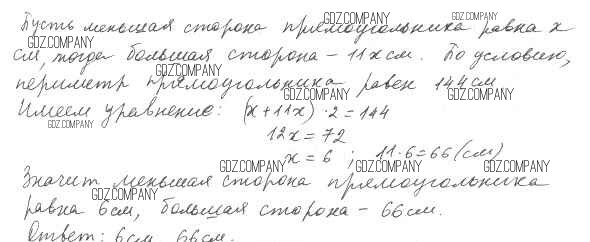 Пусть меньшая сторона прямоугольника равна x
см, тогда большая сторона - 11x см. По условию,
периметр прямоугольника равен 144 см
Имеем уравнение: (x + 11x) · 2 = 144
12x = 72
x = 6 ; 11·6 = 66 (см)
Значит меньшая сторона прямоугольника
равна 6см, большая сторона - 66см.
Ответ: 6см, 66см.
GDZ.COMPANY
GDZ.COMPANY
GDZ.COMPANY
GDZ.COMPANY
GDZ.COMPANY
GDZ.COMPANY
GDZ.COMPANY
GDZ.COMPANY
GDZ.COMPANY
GDZ.COMPANY
GDZ.COMPANY